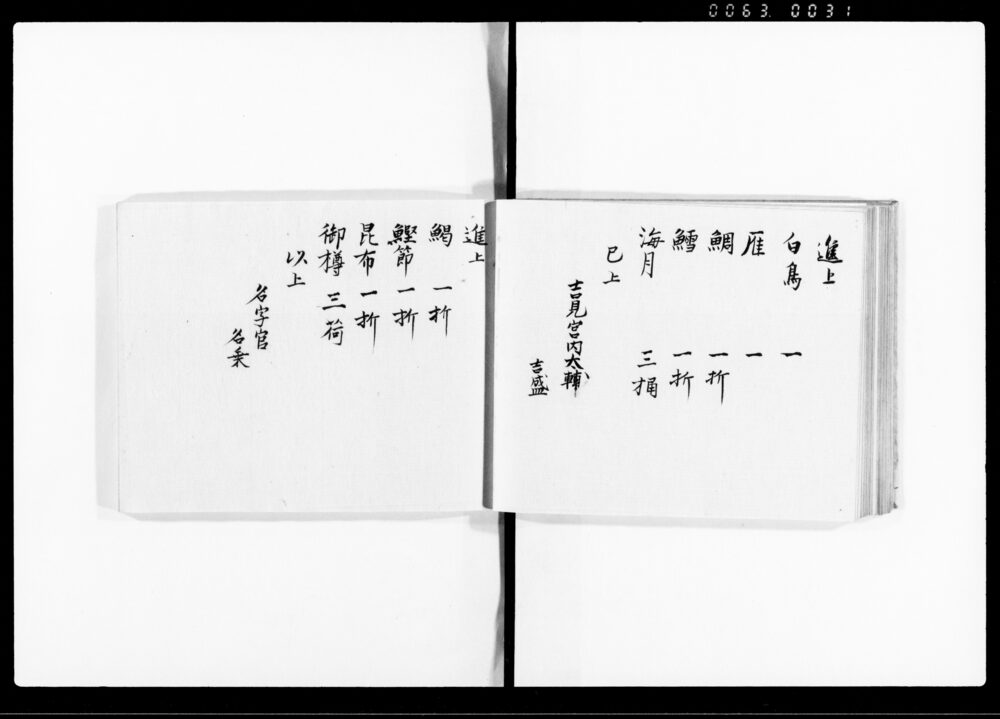 0063. 0031
進上
白鳥 一
雁 一
鯛 一折
鱈 一折
海月 三桶
已上
吉見宮内大輔
吉盛
進上
一折
鰹節 一折
昆布 一折
御樽 三荷
以上
名字官
名乗